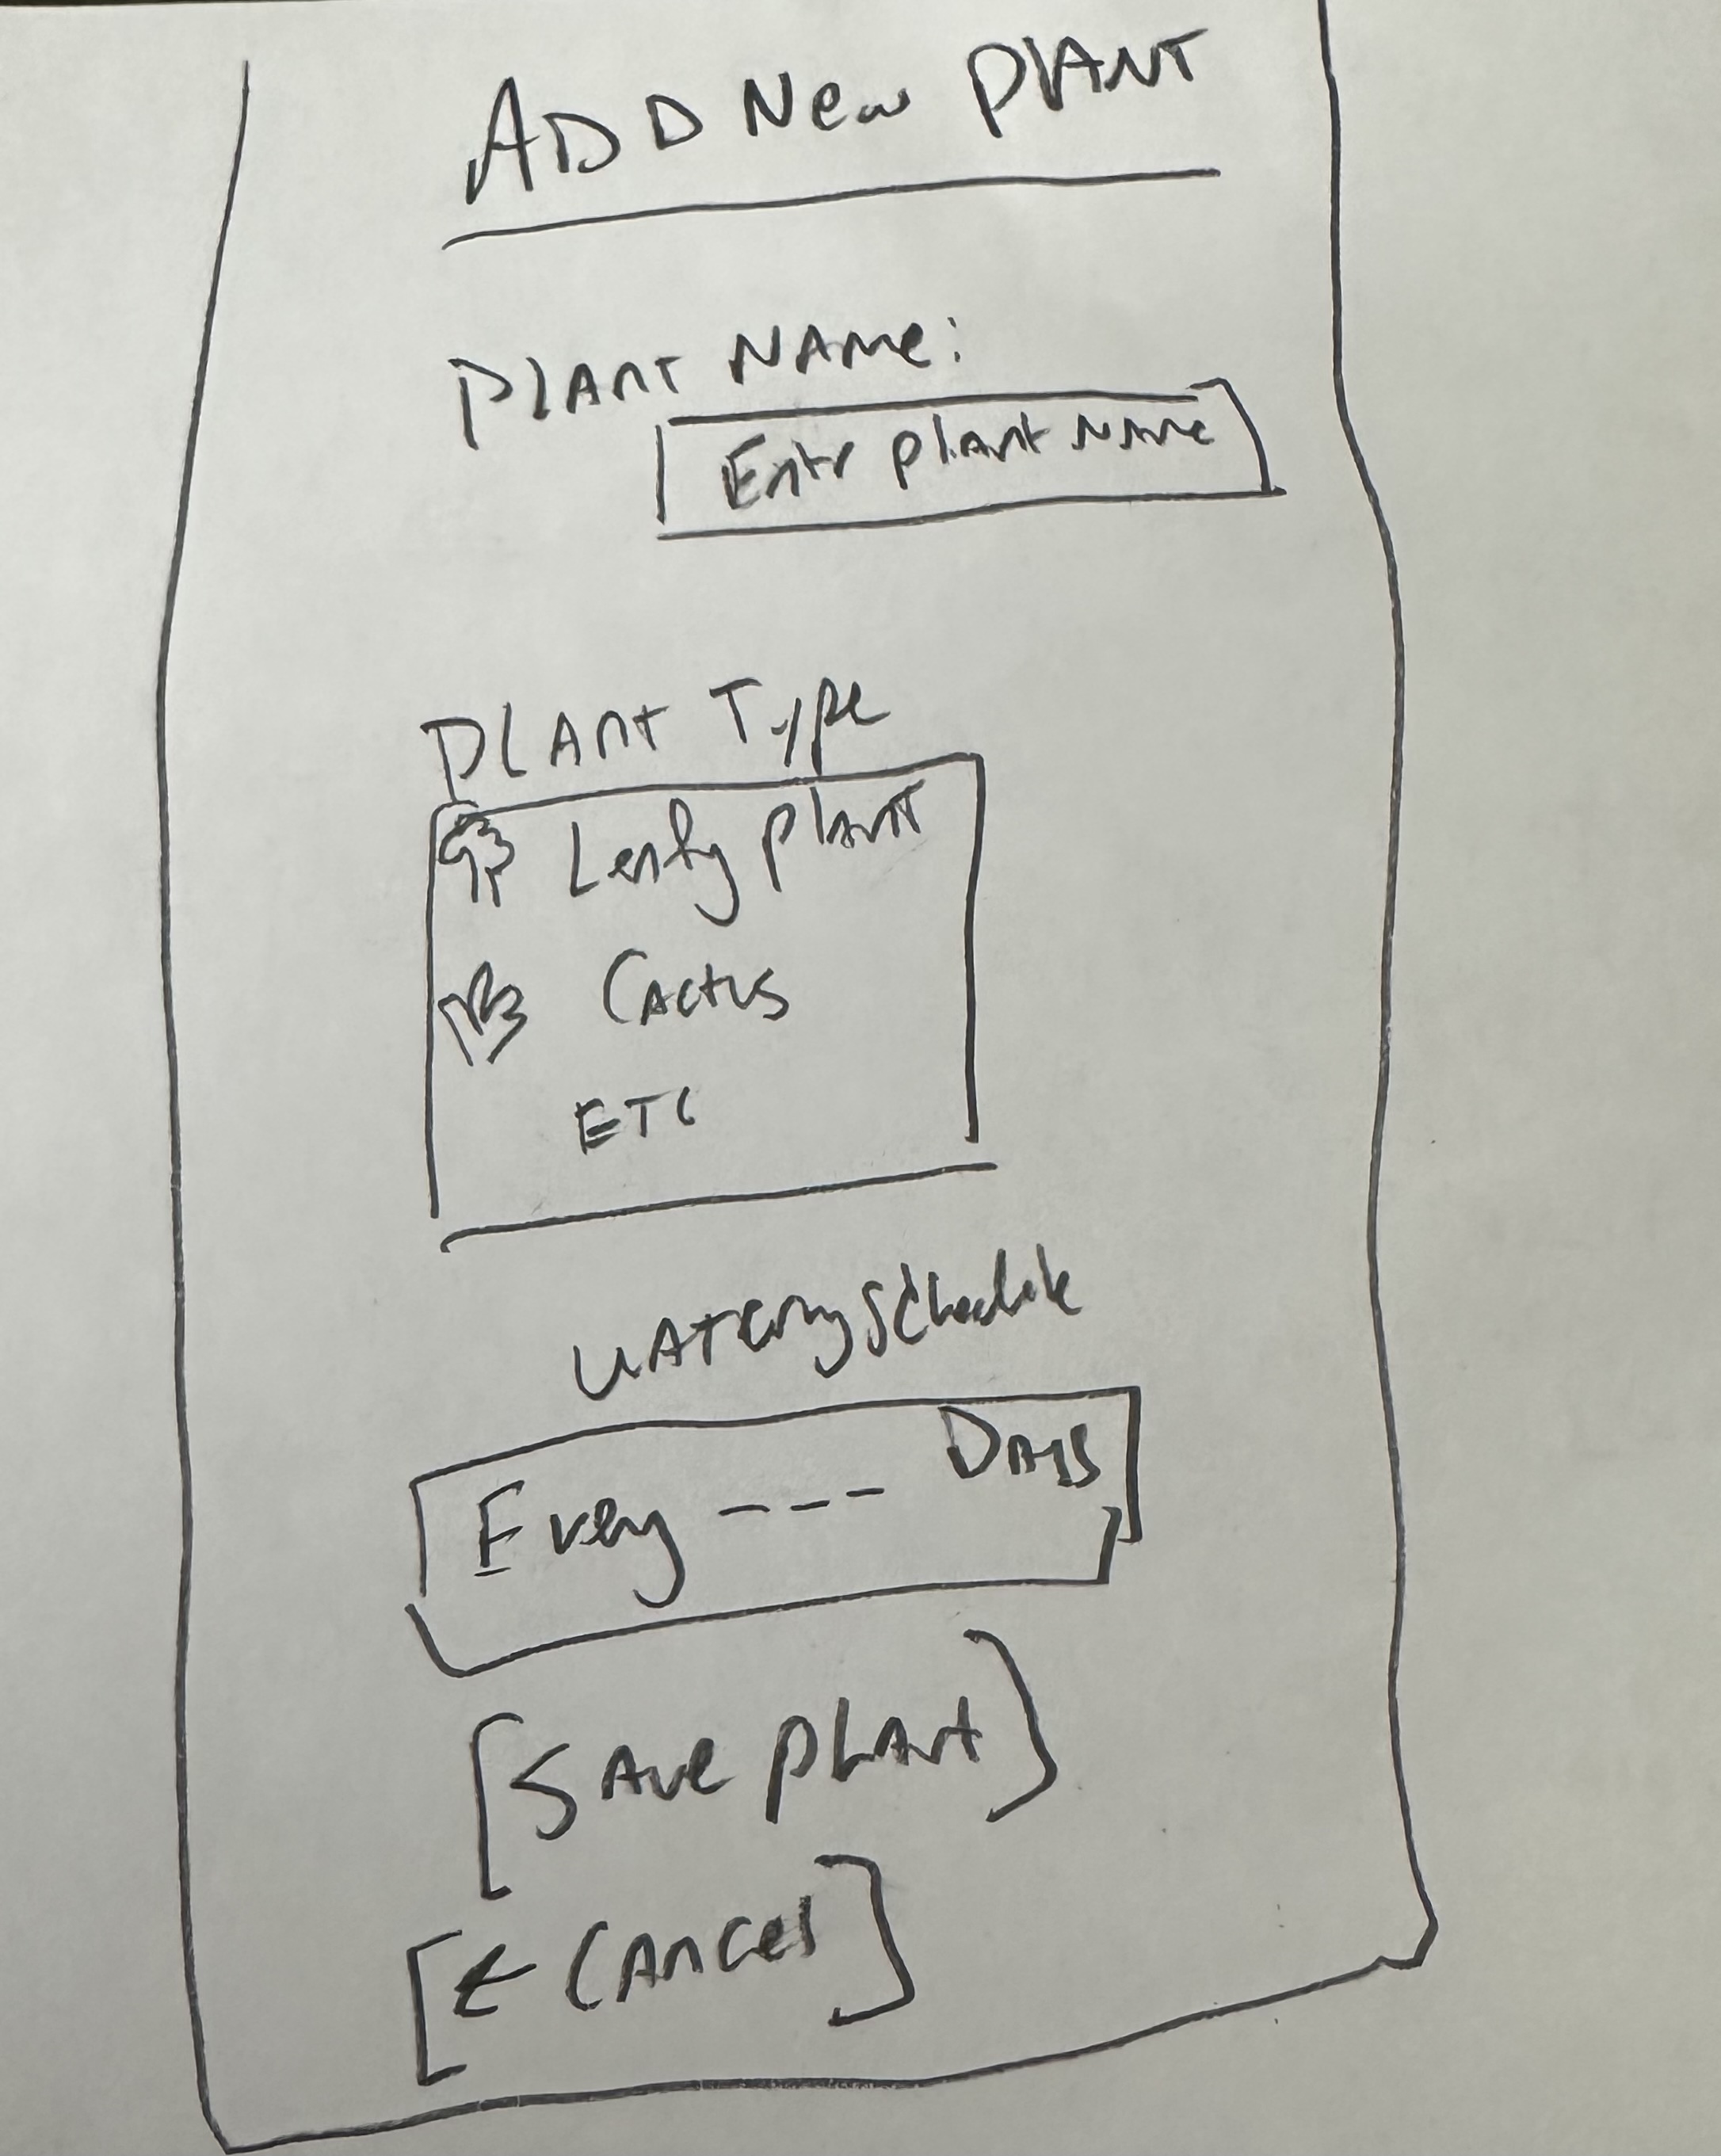 ADD New PLANT
PLANT NAMe:
Entr plant NAMe
PLANT Type
Leafy plant
CActus
ETC
WATering Schedule
Every --- DAYS
[SAve pLAnt]
[← CANCel]